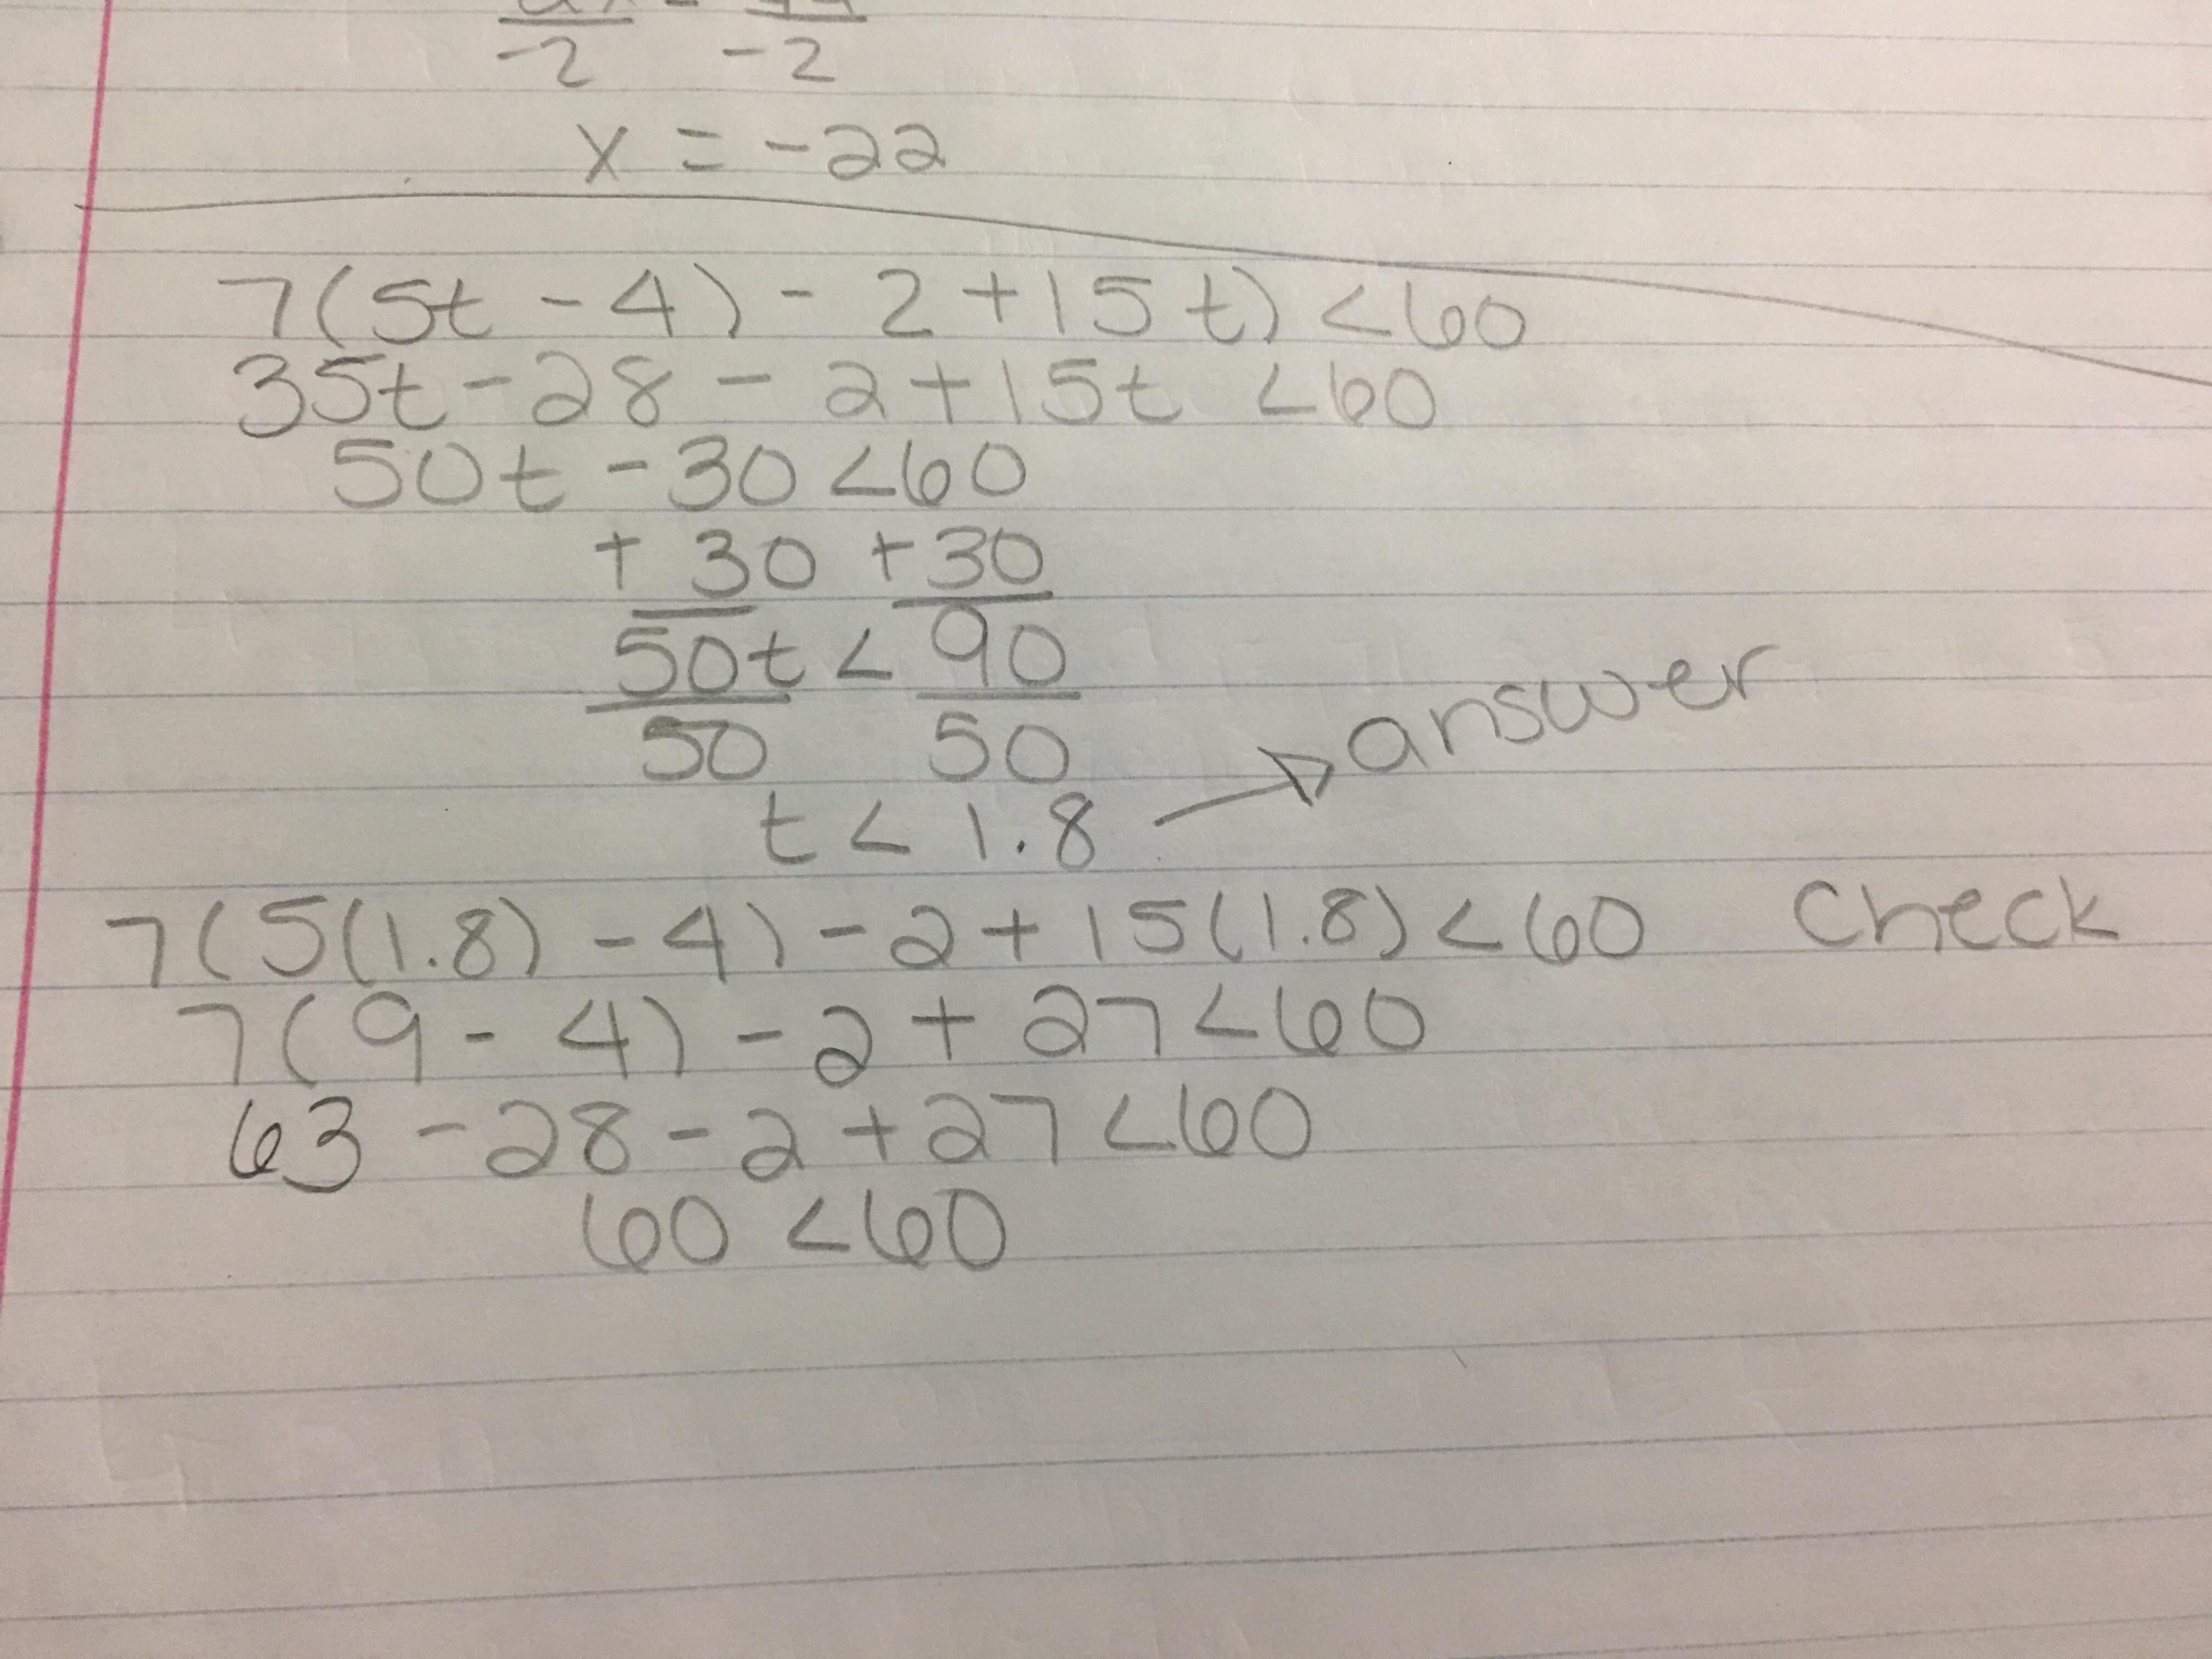 -2 -2
x = -22
7(5t - 4) - 2 + 15t) < 60
35t - 28 - 2 + 15t < 60
50t - 30 < 60
+ 30 + 30
50t < 90
50 50
t < 1.8 → answer
7(5(1.8) - 4) - 2 + 15(1.8) < 60 Check
7(9 - 4) - 2 + 27 < 60
63 - 28 - 2 + 27 < 60
60 < 60